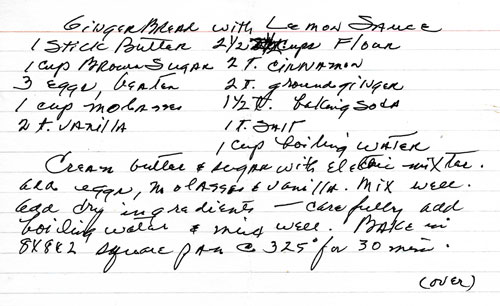 GingerBread with Lemon Sauce
1 Stick Butter 2 1/2 cups Flour
1 cup Brown Sugar 2 T. cinnamon
3 eggs, beaten 2 T. ground ginger
1 cup molasses 1 1/2 t. baking soda
2 t. vanilla 1 t. Salt
1 cup boiling water
Cream butter & sugar with Electric mixter.
add eggs, molasses & vanilla. Mix well.
add dry ingredients – carefully add
boiling water & mix well. Bake in
8X8X2 square pan @ 325° for 30 min.
(over)